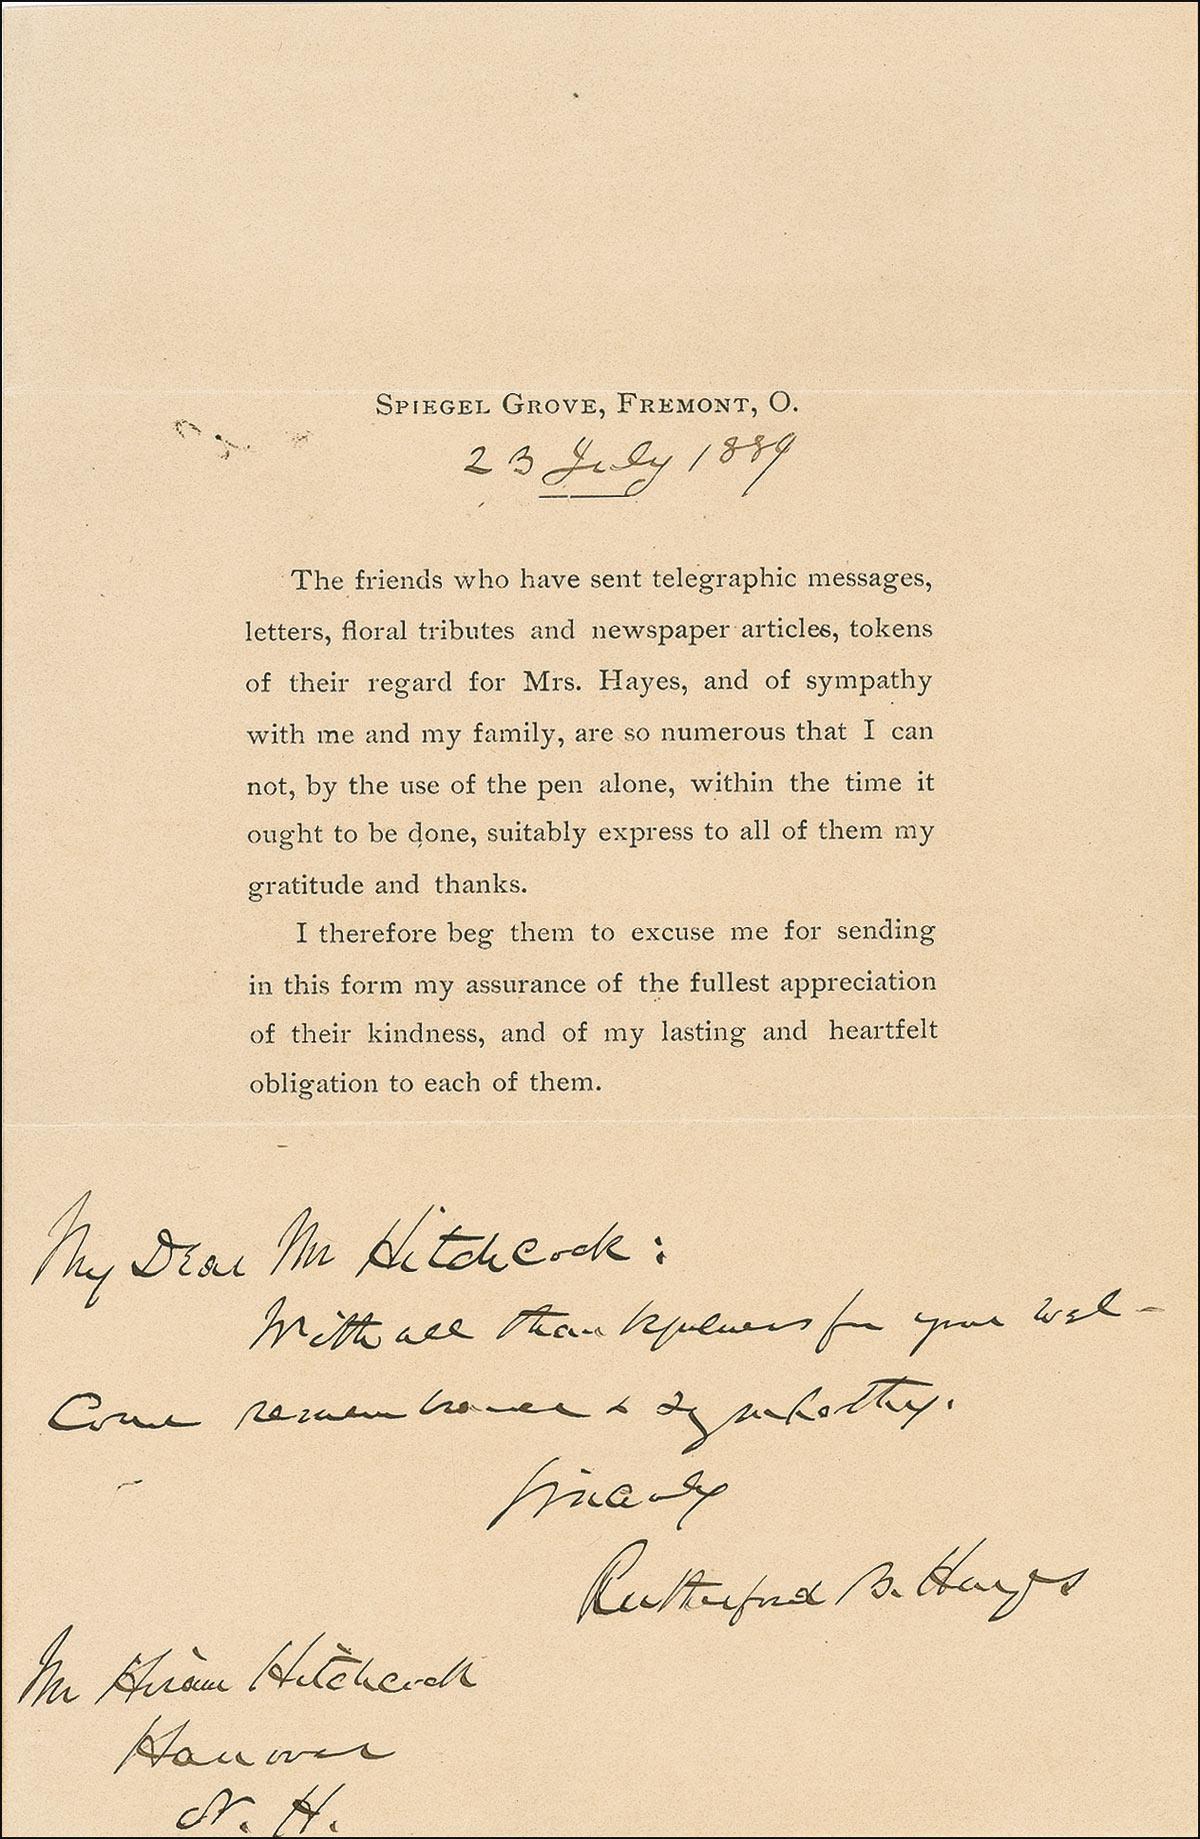 Spiegel Grove, Fremont, O.
23 July 1889
The friends who have sent telegraphic messages,
letters, floral tributes and newspaper articles, tokens
of their regard for Mrs. Hayes, and of sympathy
with me and my family, are so numerous that I can
not, by the use of the pen alone, within the time it
ought to be done, suitably express to all of them my
gratitude and thanks.
I therefore beg them to excuse me for sending
in this form my assurance of the fullest appreciation
of their kindness, and of my lasting and heartfelt
obligation to each of them.
My Dear Mr Hitchcock:
With all thankfulness for your wel-
come remembrance & sympathy.
Sincerely
Rutherford B. Hayes
Mr Hiram Hitchcock
Hanover
N. H.